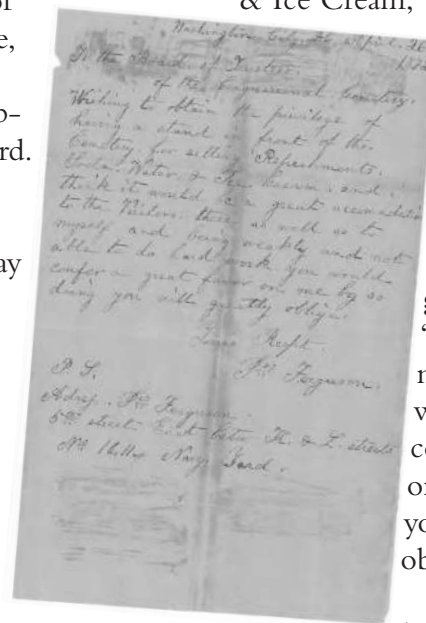 & Ice Cream,
e,
rd.
ay
Washington City April 26
To the Board of Trustees
of the Congressional Cemetery.
Wishing to obtain the privilege of
having a stand in front of the
Cemetery for selling Refreshments,
Soda Water, & Ice Cream, and
think it would be a great accomodation
to the Visitors there as well as to
myself and being weakly and not
able to do hard work you would
confer a great favor on me by so
doing you will greatly oblige
Yours Respt.
Ferguson.
P. S.
Ferguson.
5th street East betw K. & L. streets
No. Navy Yard.
g
“
w
co
or
yo
ob